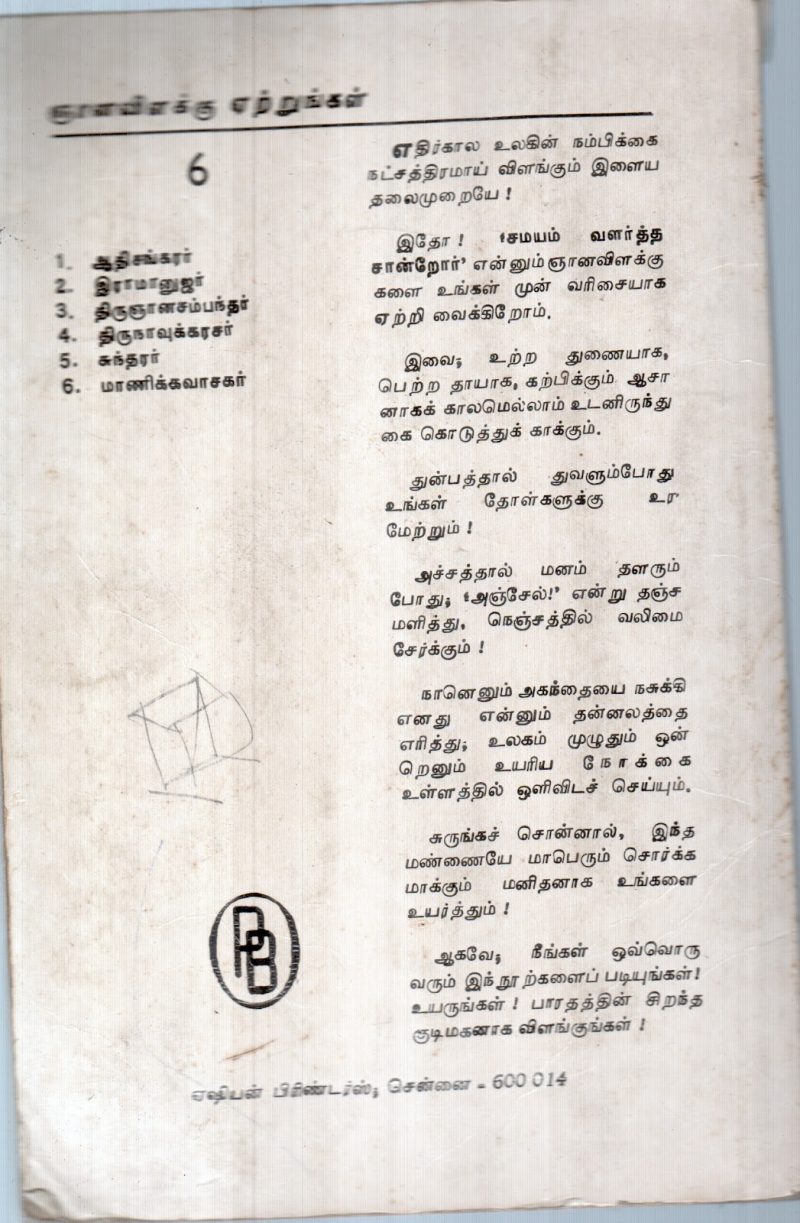 ஞானவிளக்கு ஏற்றுங்கள்
6
1. ஆதிசங்கரர்
2. இராமானுஜர்
3. திருஞானசம்பந்தர்
4. திருநாவுக்கரசர்
5. சுந்தரர்
6. மாணிக்கவாசகர்
எதிர்கால உலகின் நம்பிக்கை
நட்சத்திரமாய் விளங்கும் இளைய
தலைமுறையே !
இதோ ! ‘சமயம் வளர்த்த
சான்றோர்’ என்னும் ஞானவிளக்கு
களை உங்கள் முன் வரிசையாக
ஏற்றி வைக்கிறோம்.
இவை; உற்ற துணையாக,
பெற்ற தாயாக, கற்பிக்கும் ஆசா
னாகக் காலமெல்லாம் உடனிருந்து
கை கொடுத்துக் காக்கும்.
துன்பத்தால் துவளும்போது
உங்கள் தோள்களுக்கு உர
மேற்றும் !
அச்சத்தால் மனம் தளரும்
போது; ‘அஞ்சேல்!’ என்று தஞ்ச
மளித்து, நெஞ்சத்தில் வலிமை
சேர்க்கும் !
நானெனும் அகந்தையை நசுக்கி
எனது என்னும் தன்னலத்தை
எரித்து; உலகம் முழுதும் ஒன்
றெனும் உயரிய நோக்கை
உள்ளத்தில் ஒளிவிடச் செய்யும்.
சுருங்கச் சொன்னால், இந்த
மண்ணையே மாபெரும் சொர்க்க
மாக்கும் மனிதனாக உங்களை
உயர்த்தும் !
ஆகவே; நீங்கள் ஒவ்வொரு
வரும் இந்நூற்களைப் படியுங்கள்!
உயருங்கள் ! பாரதத்தின் சிறந்த
குடிமகனாக விளங்குங்கள் !
ஏஷியன் பிரிண்டர்ஸ்; சென்னை - 600 014